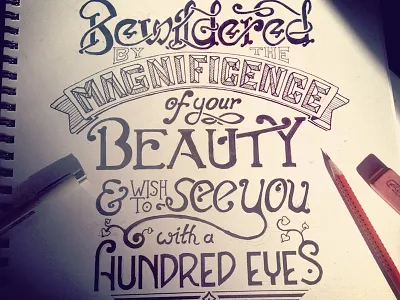 Bewildered
BY THE
MAGNIFICENCE
of your
BEAUTY
& WISH TO see you
with a
HUNDRED EYES